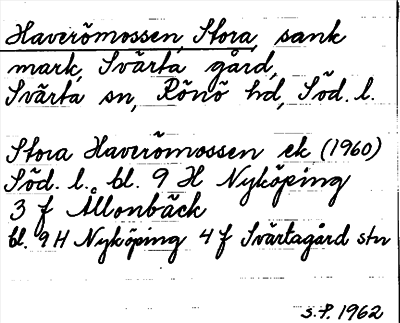 Haverömossen, Stora, sank
mark, Svärta gård,
Svärta sn, Rönö hd, Söd. l.
Stora Haverömossen ek (1960)
Söd. l. bl. 9 H Nyköping
3 f Ållonbäck
bl. 9 H Nyköping 4 f Svärtagård stn
S.P. 1962